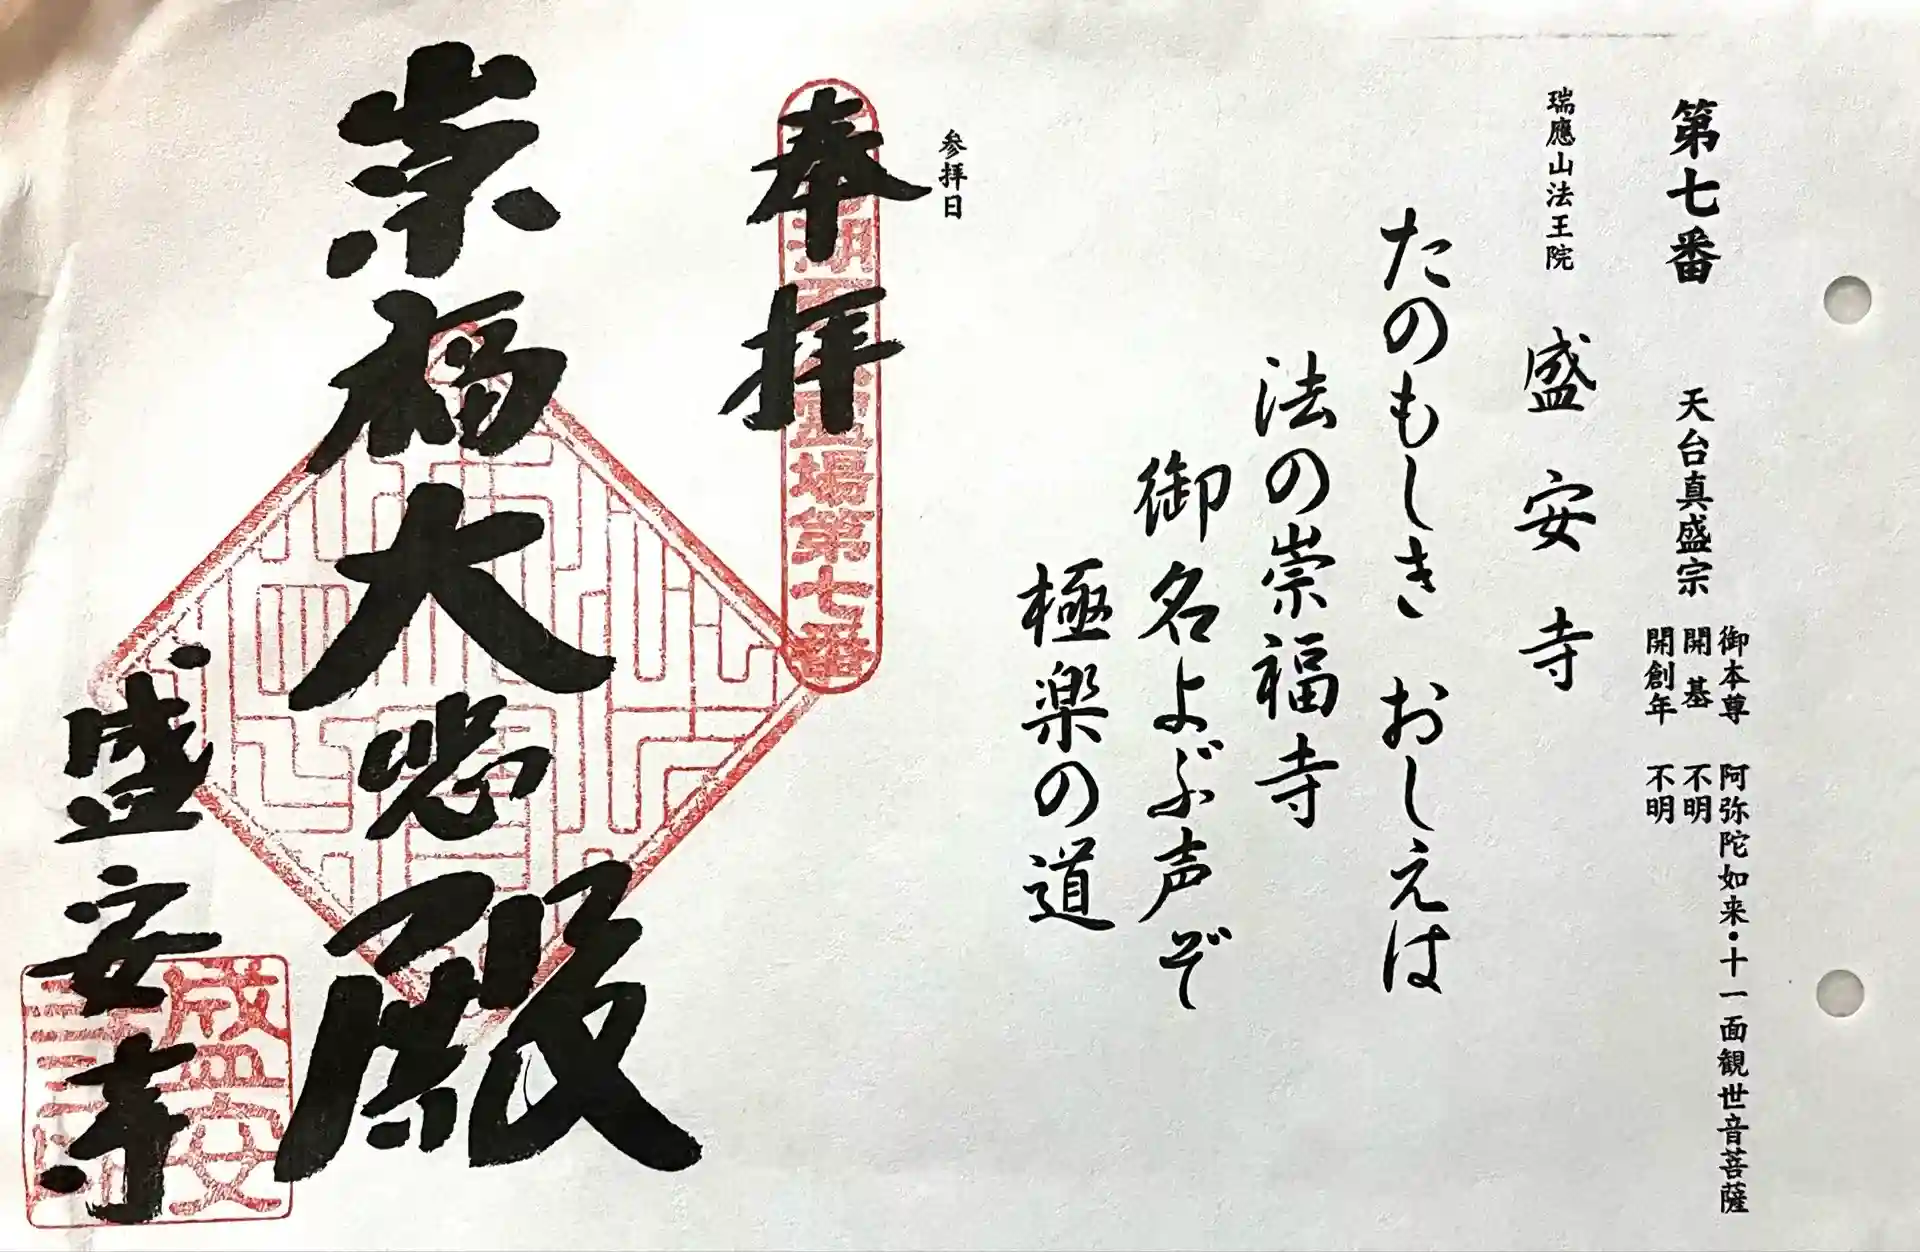 第七番 天台真盛宗
御本尊 阿弥陀如来・十一面観世音菩薩
開基 不明
開創年 不明
瑞應山法王院 盛安寺
たのもしき おしえは
法の崇福寺
御名よぶ声ぞ
極楽の道
参拝日
奉拝
湖
霊場第七番
崇福大悲殿
盛安寺
盛安
寺印